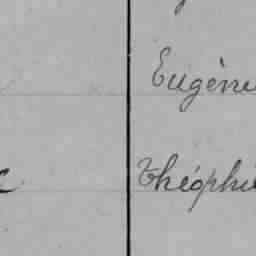 Eugène
Théophi